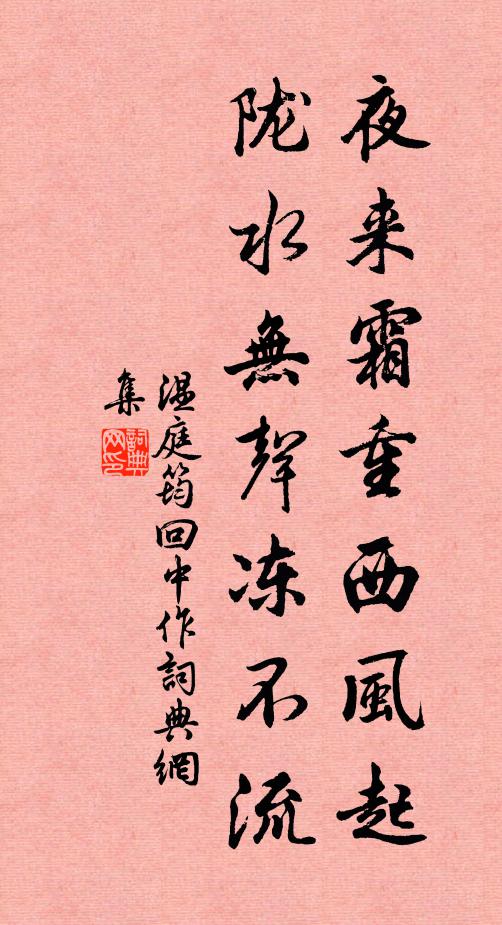 夜来霜重西風起
陇水無聲冻不流
温庭筠回中作詞典網
集
詞典網印